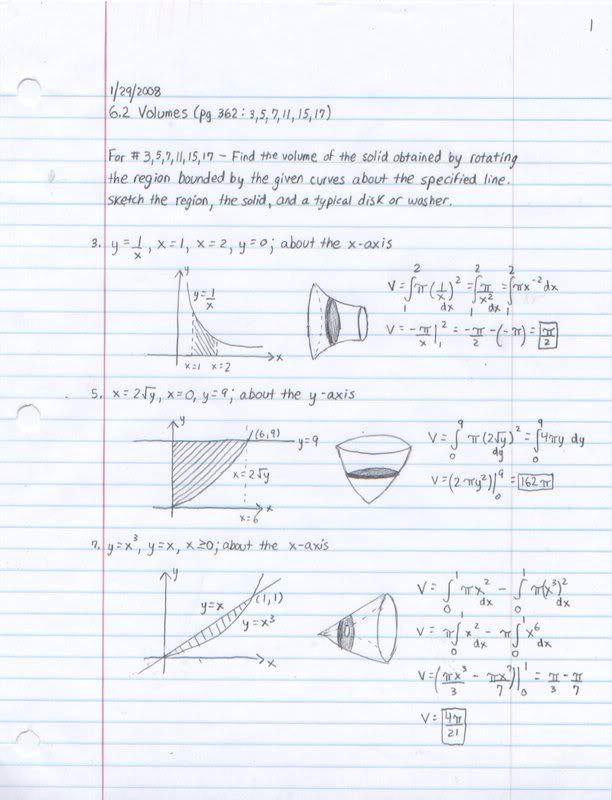 1
1/29/2008
6.2 Volumes (pg 362: 3,5,7,11,15,17)
For # 3,5,7,11,15,17 - Find the volume of the solid obtained by rotating
the region bounded by the given curves about the specified line.
Sketch the region, the solid, and a typical disk or washer.
3. y = 1/x, x=1, x=2, y=0; about the x-axis
y
y=1/x
x
x=1 x=2
V = ∫₁² π(1/x)² dx = ∫₁² π/x² dx = ∫₁² πx⁻² dx
V = -π/x |₁² = -π/2 - (-π) = π/2
5. x = 2√y, x=0, y=9; about the y-axis
y
(6,9)
y=9
x=2√y
x
x=6
V = ∫₀⁹ π(2√y)² dy = ∫₀⁹ 4πy dy
V = (2πy²)|₀⁹ = 162π
7. y=x³, y=x, x≥0; about the x-axis
y
y=x
(1,1)
y=x³
x
V = ∫₀¹ πx² dx - ∫₀¹ π(x³)² dx
V = π∫₀¹ x² dx - π∫₀¹ x⁶ dx
V = (πx³/3 - πx⁷/7)|₀¹ = π/3 - π/7
V = 4π/21